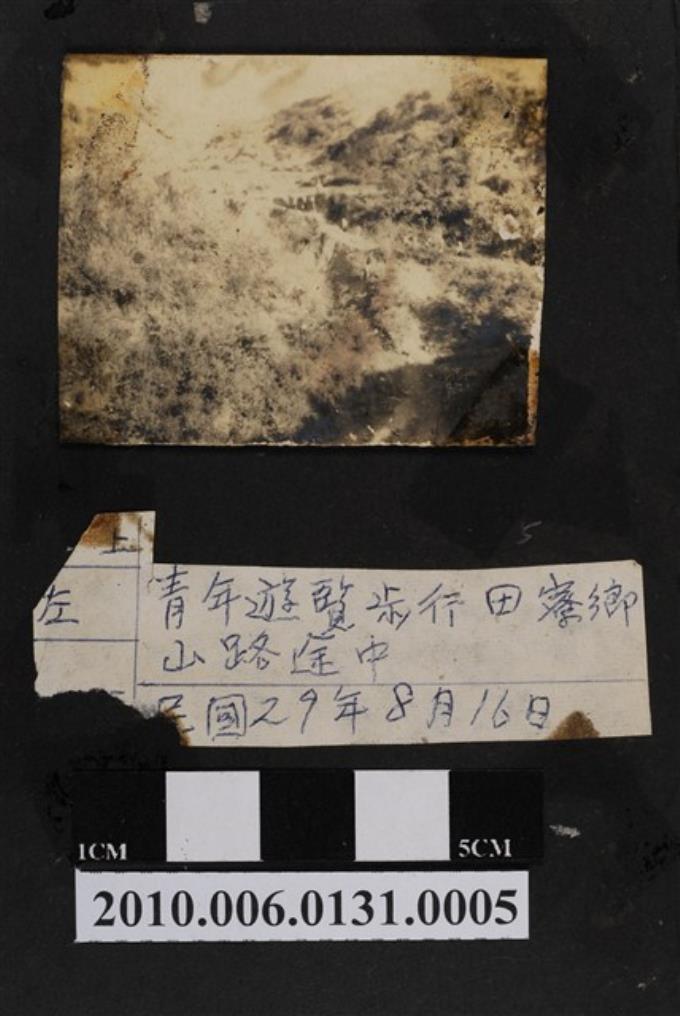 上
左
青年遊覽步行田寮鄉
山路途中
民國29年8月16日
5
1CM 5CM
2010.006.0131.0005